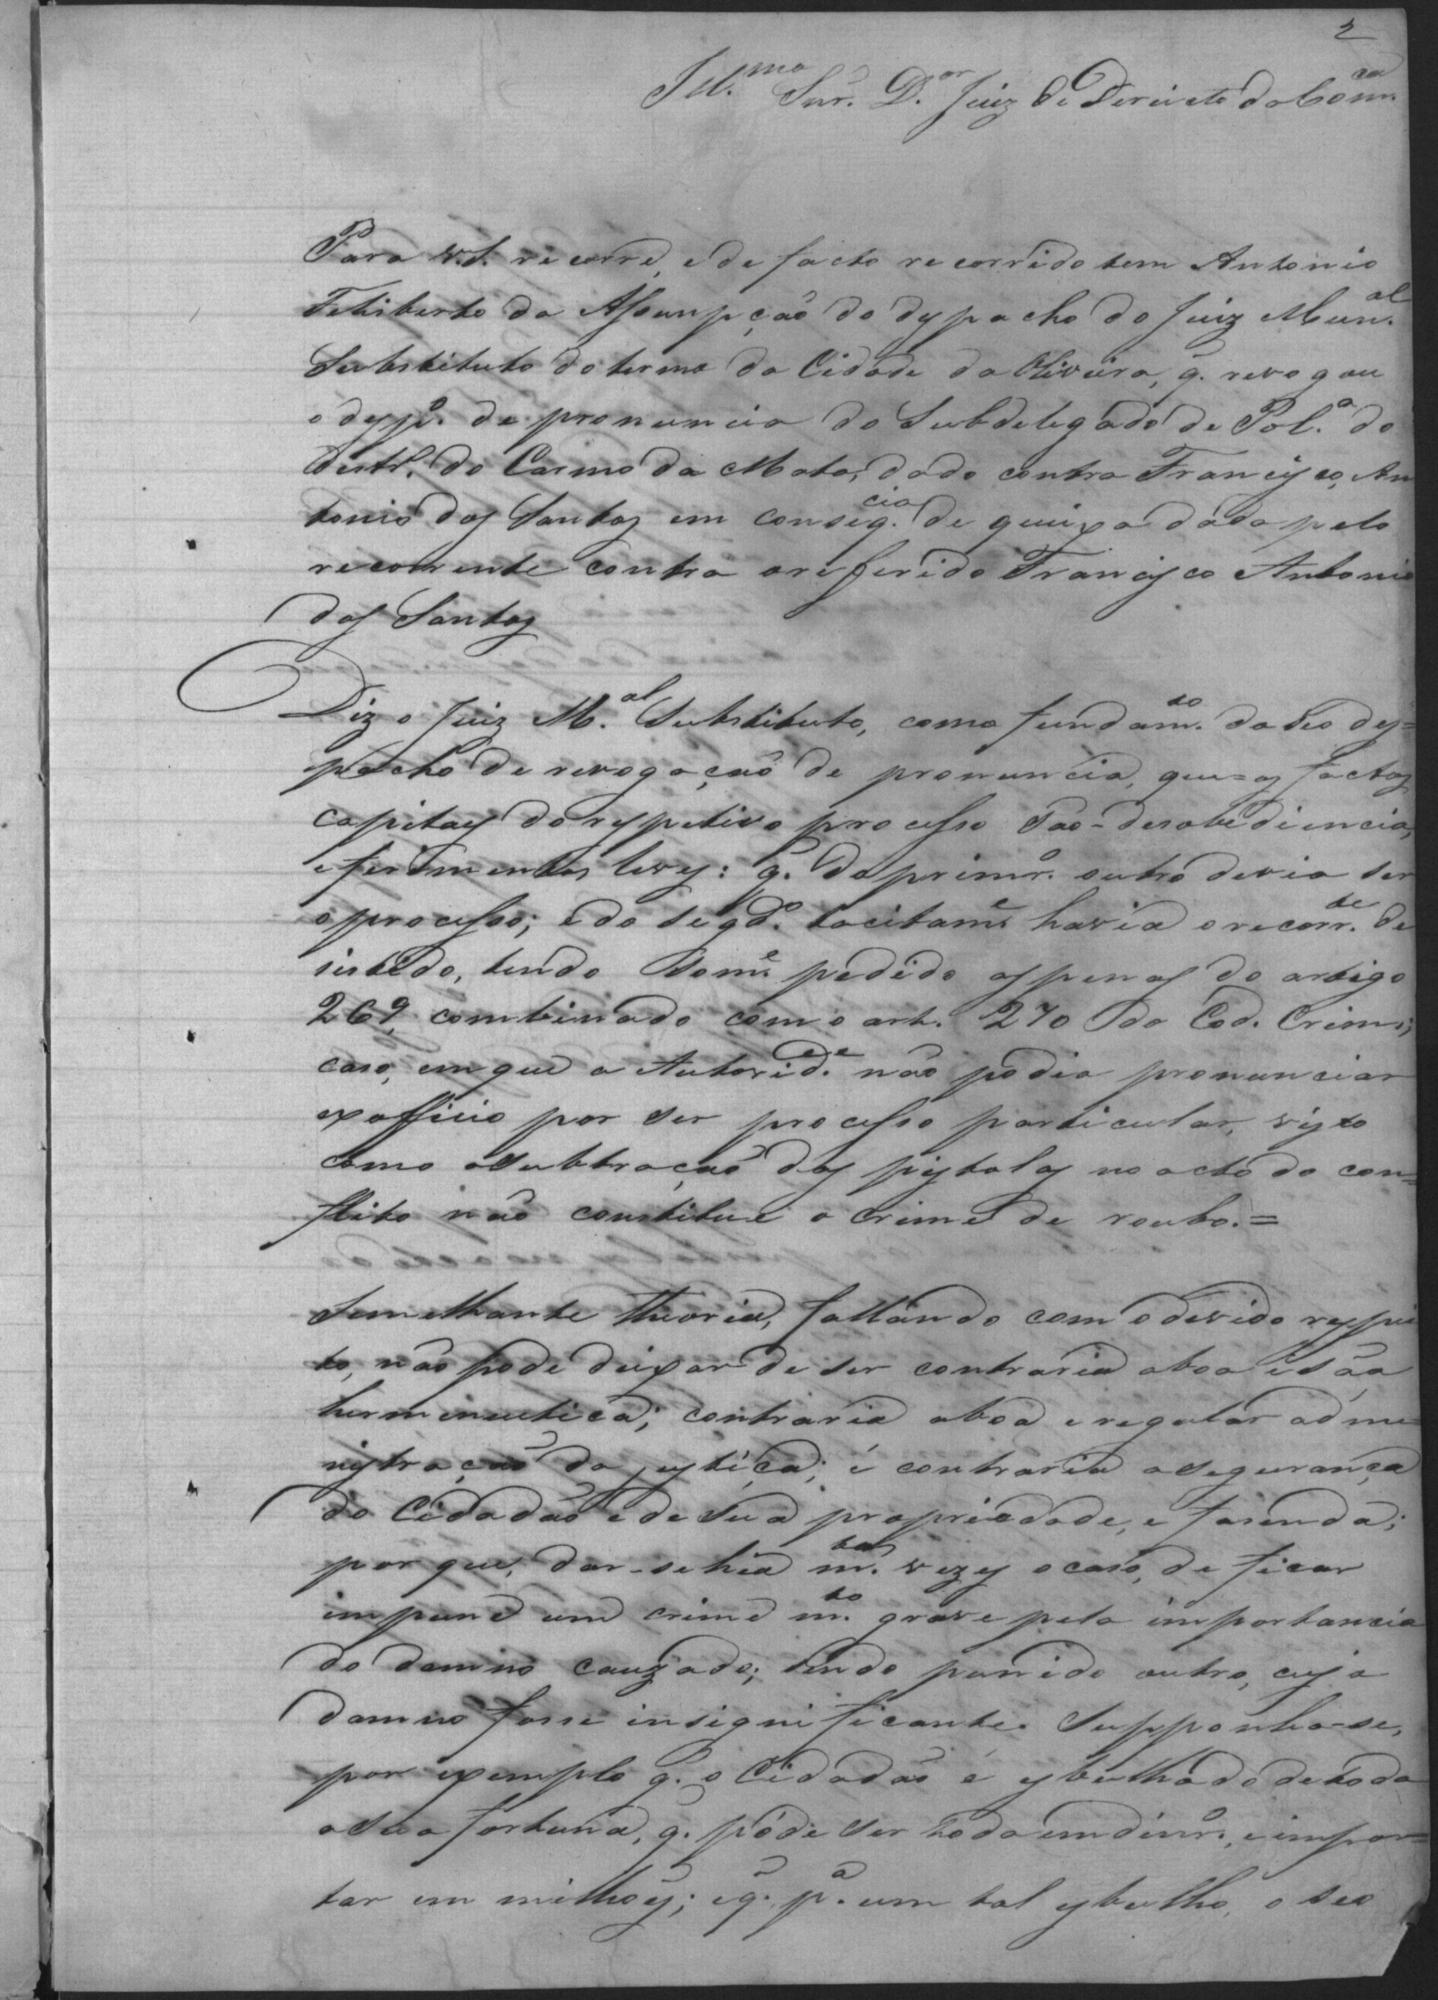 2
Ill.mo Snr. D.or Juiz de Dereito da Com.ca
Para V.S. recorre, e de facto recorrido tem Antonio
Feliberto da Assumpção do dyspacho do Juiz Mun.al
Substituto do termo da Cidade da Oliveira, q. revogou
o desp.o de pronuncia do Subdelegado de Pol.a do
Destr.o do Carmo da Mata, dado contra Francisco An
tonio dos Santos em conseq.cia de queixa dada pelo
recorrente contra o referido Francisco Antonio
dos Santos
Diz o Juiz M.al Substituto, como fundam.to do seo des=
pacho de revogação de pronuncia, que = os factos
capitaes do respetivo processo são - desobediencia,
e ferimentos leves: q. do primr.o outro devia ser
o processo; e do segd.o tacitam.e havia o recorr.te de
sistido, tendo som.e pedido as penas do artigo
269 combinado com o art. 270 do Cod. Crim.;
caso, em que a Autorid.e não podia pronunciar
exofficio por ser processo particular, visto
como a subtração das pistolas no acto do con=
flito não constitue o crime de roubo. =
Semelhante theoria, fallando com o devido respei
to, não pode deixar de ser contraria a boa e sãa
hermineutica; contraria a boa e regular adme
nistração da justiça; é contraria a segurança
do Cidadão e de sua propriedade, e fasenda;
por que, dar-se hia m.tas vezes o caso, de ficar
impune um crime m.to grave pela importancia
do damno cauzado; sendo punido outro, cujo
damno fosse insignificante. Supponha-se,
por exemplo q. o Cidadão é esbulhado de toda
a sua fortuna, q. póde ser toda em dinr.o, e impor=
tar em milhões; e q. p.a um tal esbulho, o seo